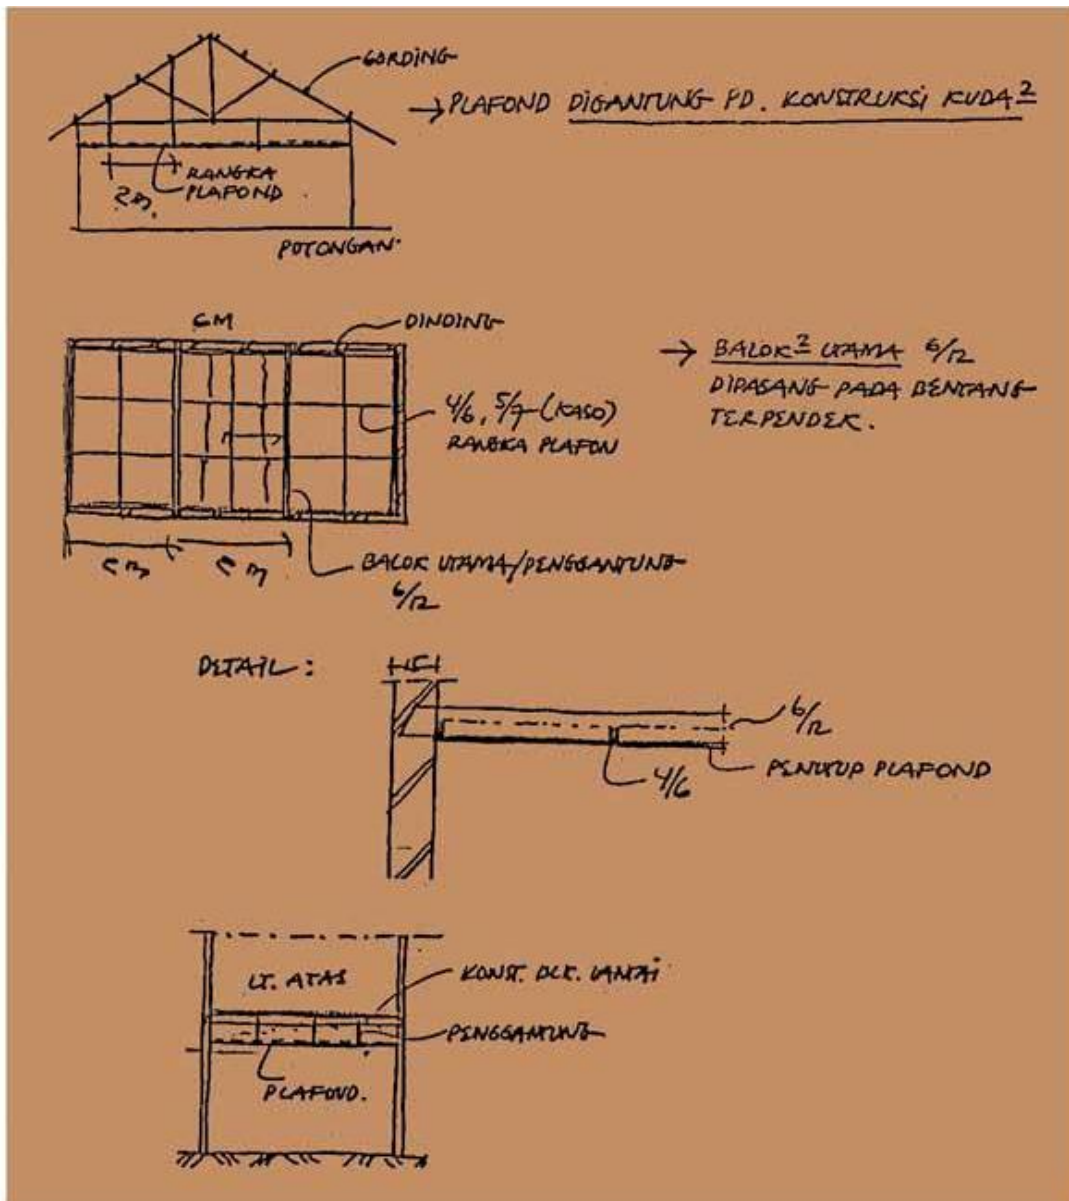 GORDING
→ PLAFOND DIGANTUNG PD. KONSTRUKSI KUDA²
RANGKA
PLAFOND
2m.
POTONGAN.
DINDING
→ BALOK² UTAMA 6/12
DIPASANG PADA BENTANG
TERPENDEK.
4/6, 5/7 (KASO)
RANGKA PLAFON
BALOK UTAMA/PENGGANTUNG
6/12
DETAIL :
6/12
PENUTUP PLAFOND
4/6
LT. ATAS
KONST. BLK. LANTAI
PENGGANTUNG
PLAFOND.